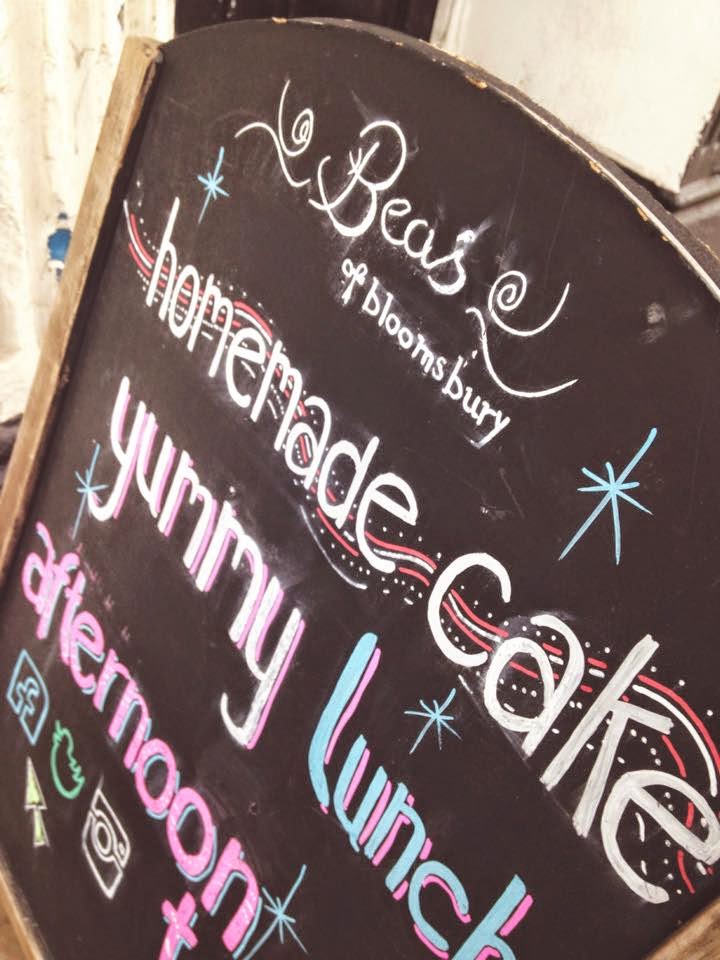 Beas
of bloomsbury
homemade cake
yummy lunch
afternoon